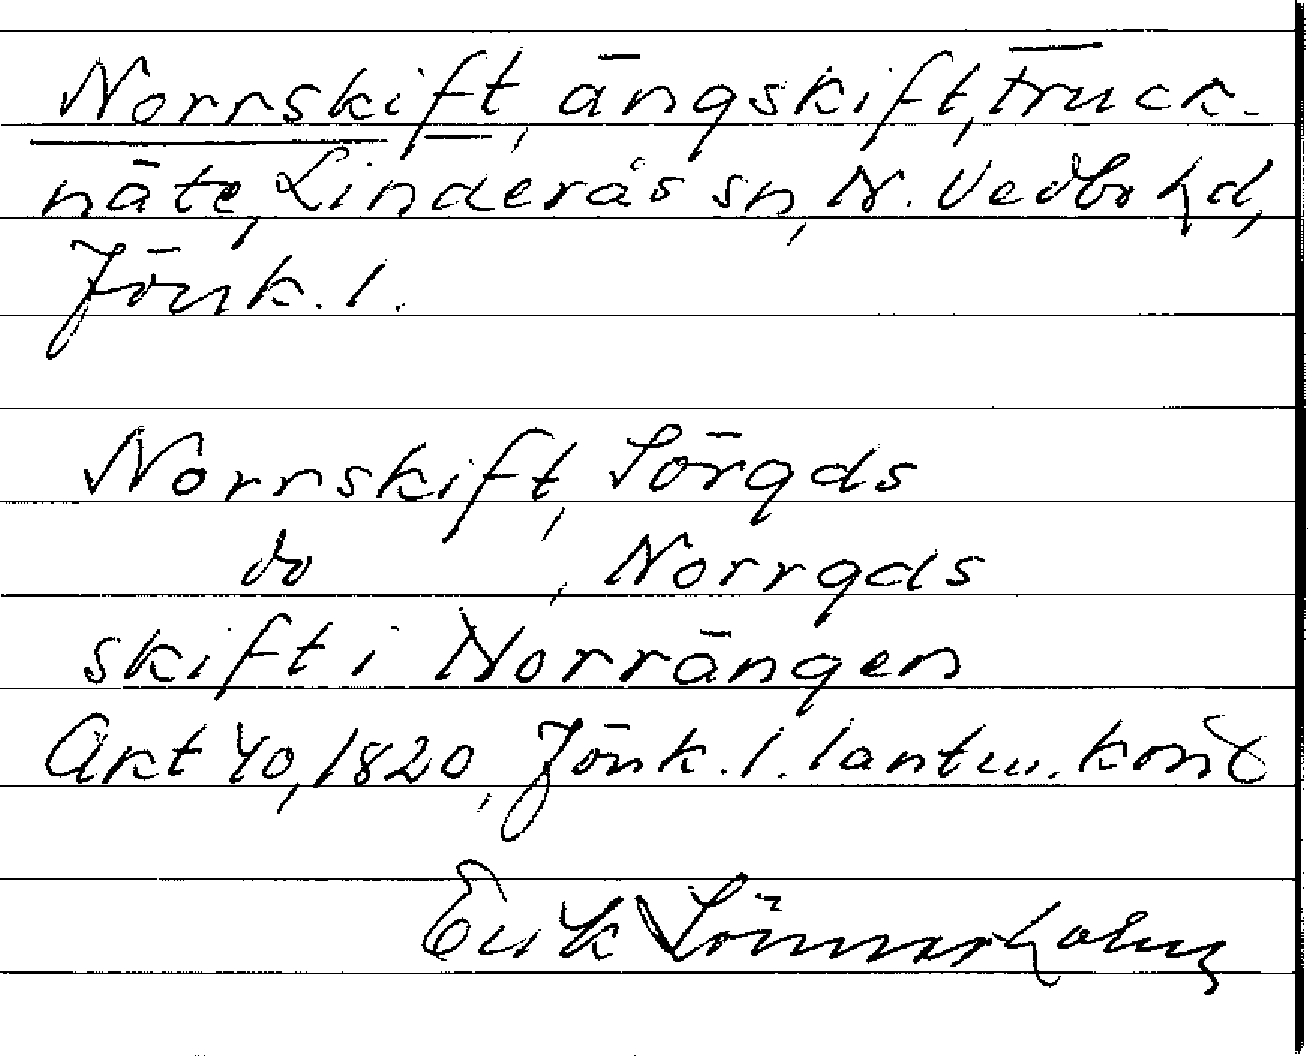 Norrskift, ängskift, Truck-
näte, Linderås sn, N. Vedbo hd,
Jönk. l.
Norrskift, Sörgds
do , Norrgds
skift i Norrängen
Akt 40, 1820, Jönk. l. lantm. kont
Erik Lönnerholm